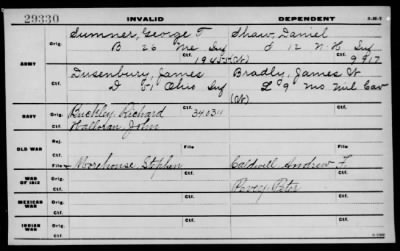 29330 INVALID DEPENDENT
ARMY
Orig. Sumner, George F Shaw, Daniel
B 26 Me Inf F 12 N.H. Inf
Ctf. (Ct) 9 9 17
Orig. Dusenbury, James Bradly, James W
D 51 Ohio Inf L 9 Mo Mil Cav
Ctf. (Ct)
NAVY
Orig. Buckley, Richard 34034
Ctf. Halloran, John Ctf.
OLD WAR
Rej.
Ctf. File File
WAR OF 1812
Orig. Morehouse, Stephen Caldwell, Andrew F.
Ctf. Povey, Peter
MEXICAN WAR
Orig.
Ctf.
INDIAN WAR
Orig.
Ctf.